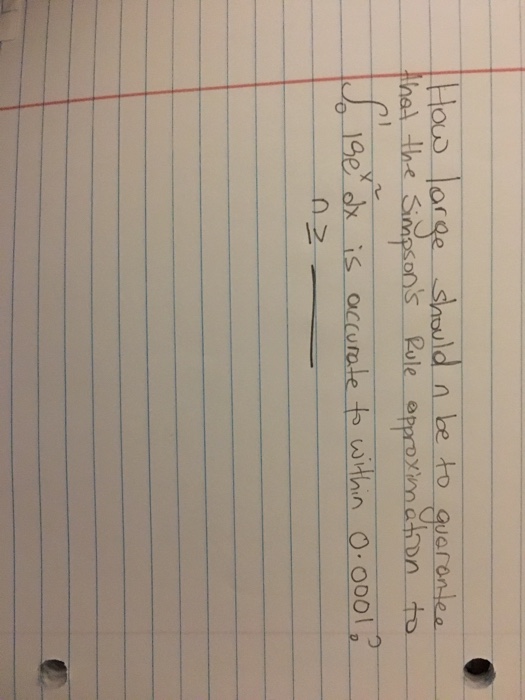 How large should n be to guarantee
that the Simpson's Rule approximation to
∫₀¹ 19eˣ² dx is accurate to within 0.0001?
n ≥ ____